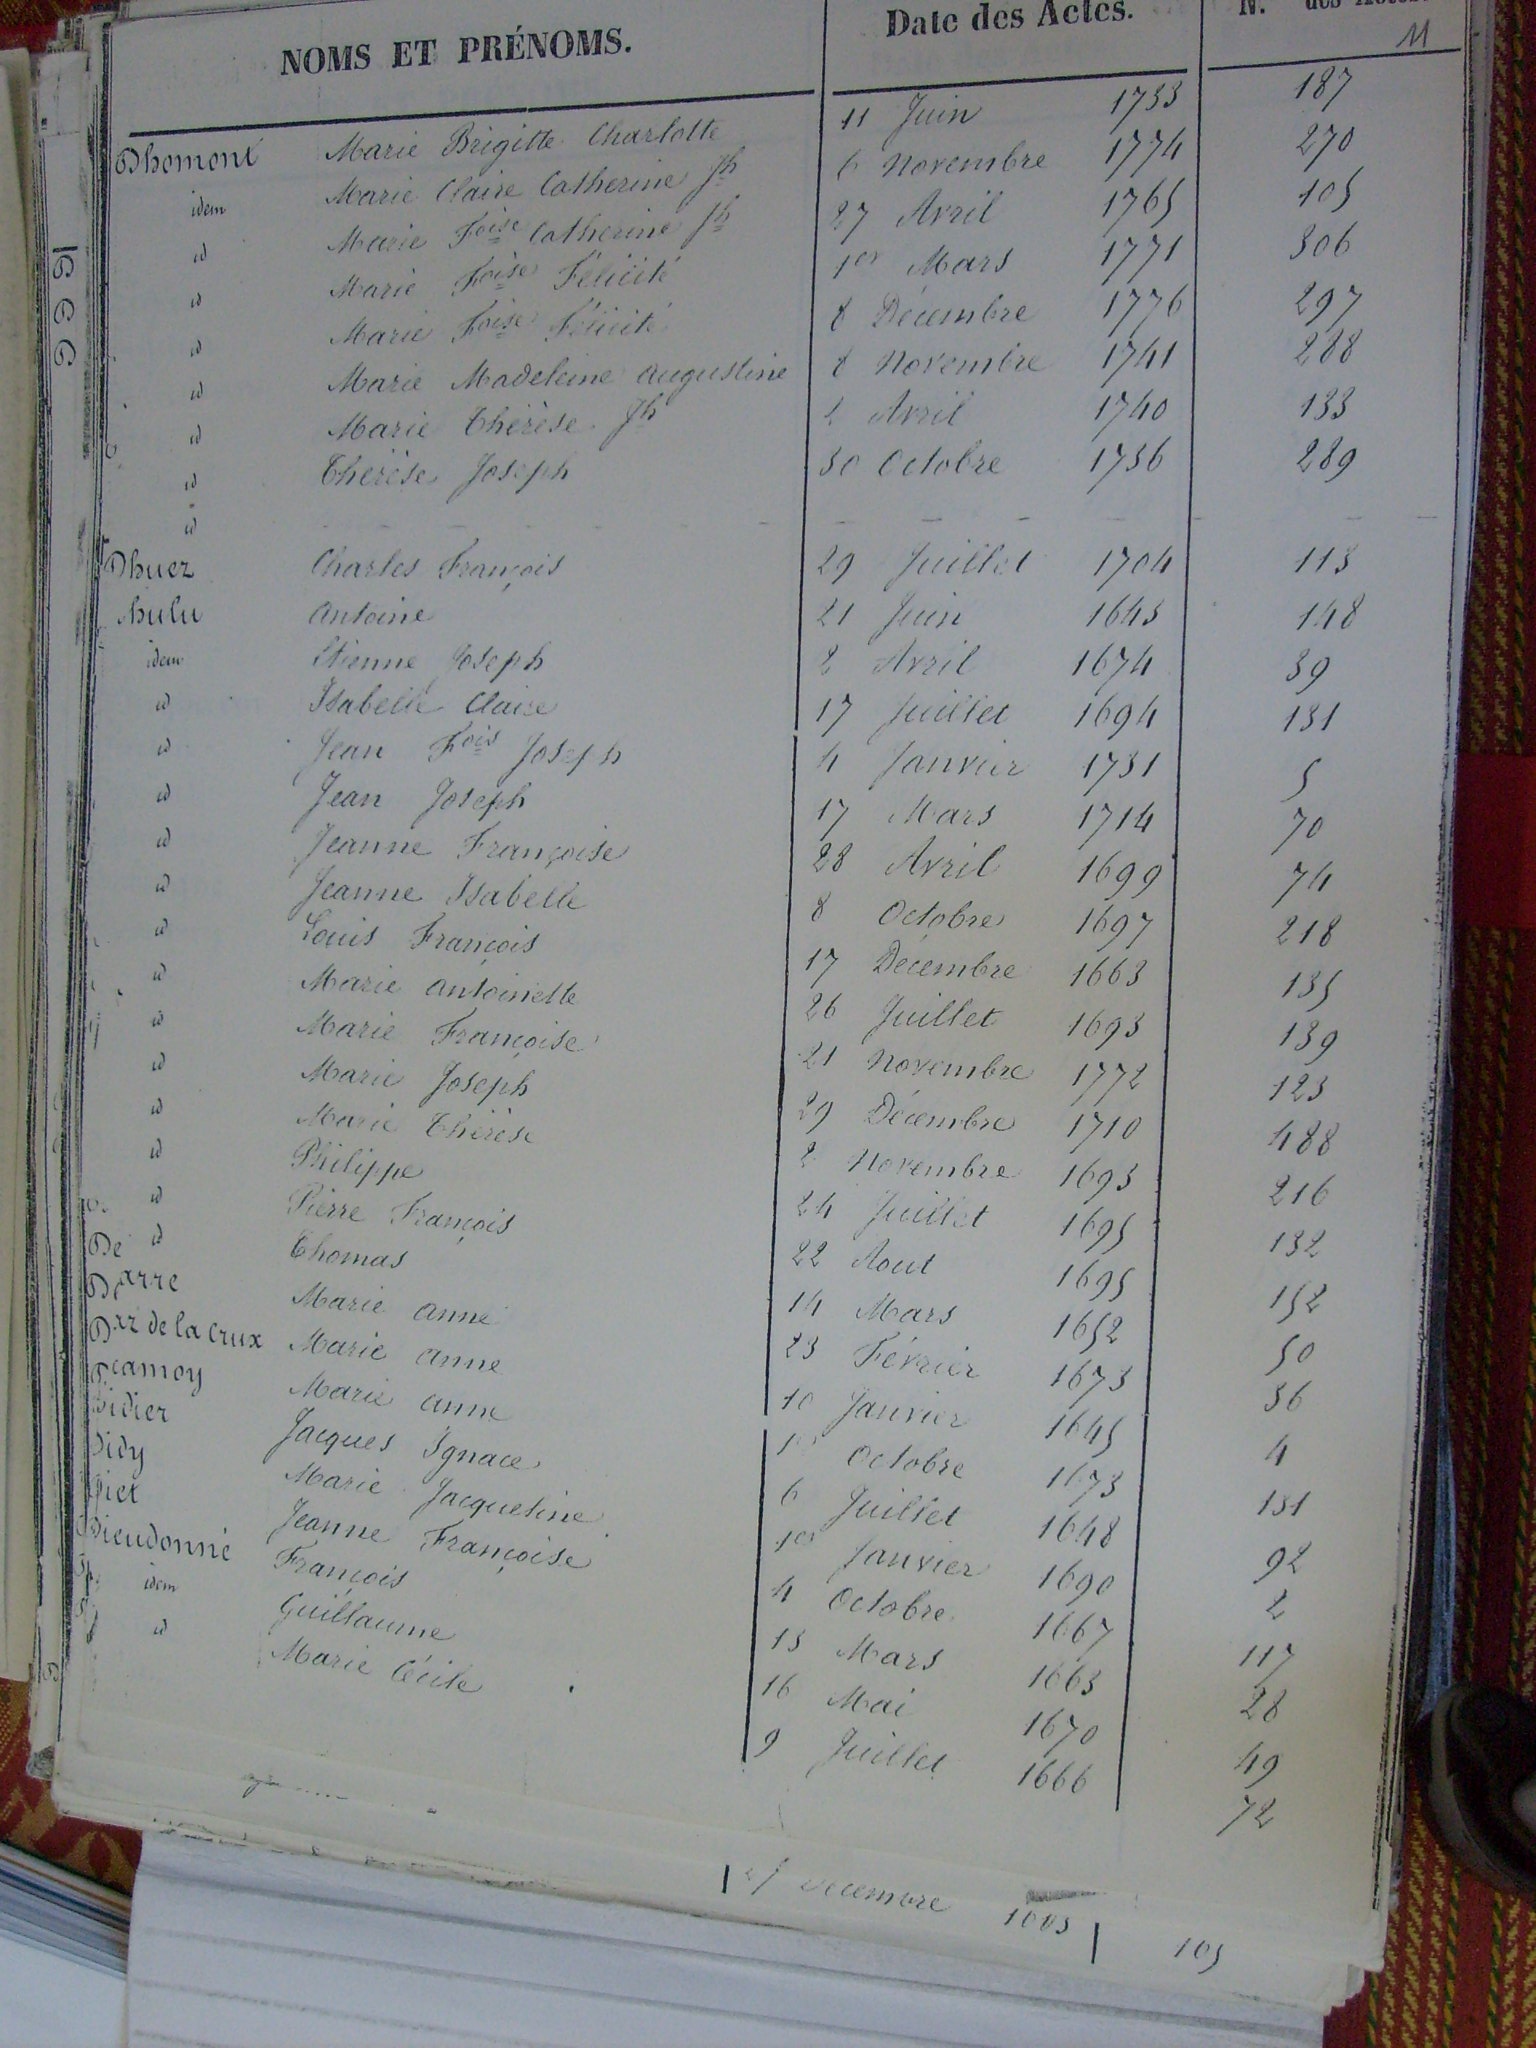 NOMS ET PRÉNOMS. Date des Actes. N. des Actes.
11
Dhomont Marie Brigitte Charlotte 11 Juin 1733 187
idem Marie Claire Catherine Jh 6 Novembre 1774 270
id Marie Foise Catherine Jh 27 Avril 1765 105
id Marie Foise Félicité 1er Mars 1771 306
id Marie Foise Félicité 8 Décembre 1776 297
id Marie Madeleine Augustine 8 Novembre 1741 288
id Marie Thérèse Jh 2 Avril 1740 133
id Thérèse Joseph 30 Octobre 1736 289
id
Dhuez Charles François 29 Juillet 1704 113
hulu Antoine 21 Juin 1643 148
idem Etienne Joseph 2 Avril 1674 39
id Isabelle Claire 17 Juillet 1694 131
id Jean Fois Joseph 4 Janvier 1731 5
id Jean Joseph 17 Mars 1714 70
id Jeanne Françoise 28 Avril 1699 74
id Jeanne Isabelle 8 Octobre 1697 218
id Louis François 17 Décembre 1663 135
id Marie Antoinette 26 Juillet 1693 139
id Marie Françoise 21 Novembre 1772 123
id Marie Joseph 29 Décembre 1710 488
id Marie Thérèse 2 Novembre 1693 216
id Philippe 24 Juillet 1695 132
id Pierre François 22 Aout 1695 152
id Thomas 14 Mars 1652 50
arre Marie Anne 23 Février 1673 36
de la Crux Marie Anne 10 Janvier 1645 4
camoy Marie Anne 1er Octobre 1673 131
idier Jacques Ignace 6 Juillet 1648 92
idy Marie Jacqueline 1er Janvier 1690 2
iet Jeanne Françoise 4 Octobre 1667 117
ieudonné François 13 Mars 1663 28
idem Guillaume 16 Mai 1670 49
id Marie Cécile 9 Juillet 1666 72
Decembre 105